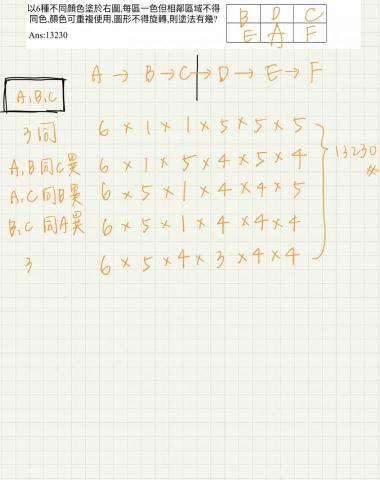 以6種不同顏色塗於右圖,每區一色但相鄰區域不得
同色,顏色可重複使用,圖形不得旋轉,則塗法有幾?
Ans:13230
B D C
E A F
A → B → C → D → E → F
A,B,C
3同 6 × 1 × 1 × 5 × 5 × 5
A,B同C異 6 × 1 × 5 × 4 × 5 × 4
A,C同B異 6 × 5 × 1 × 4 × 4 × 5
B,C同A異 6 × 5 × 1 × 4 × 4 × 4
3 6 × 5 × 4 × 3 × 4 × 4
13230